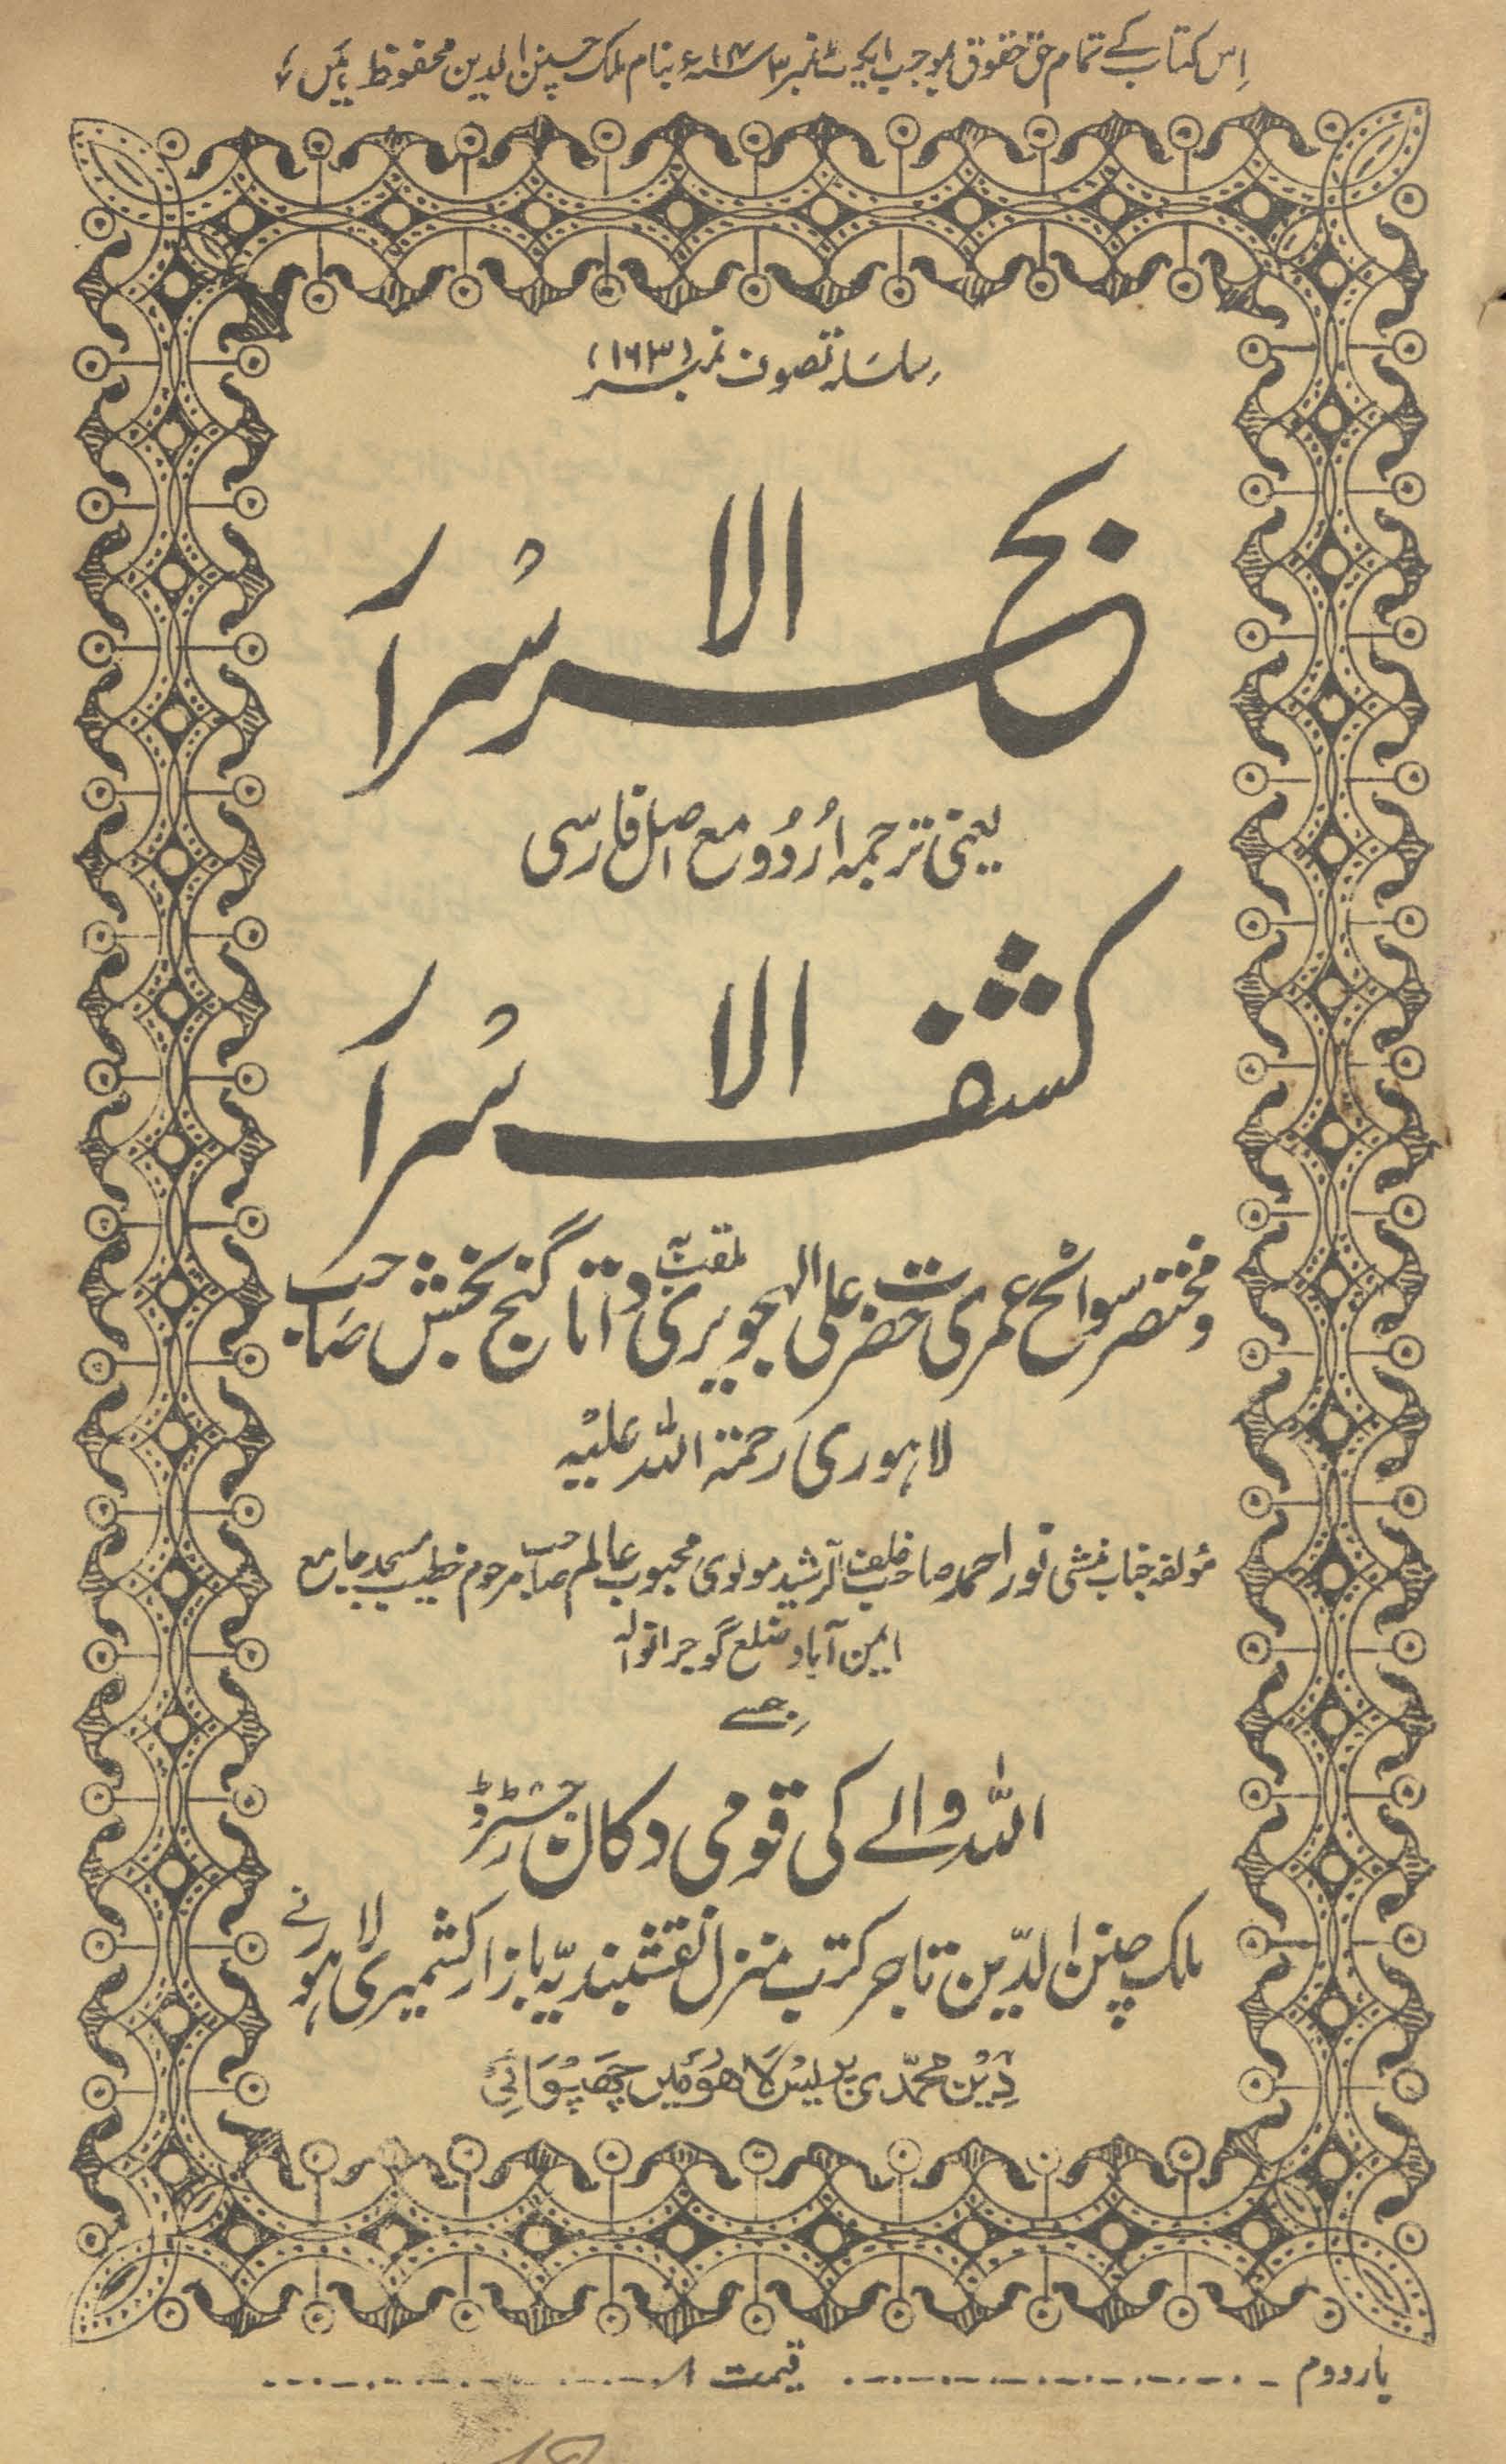 اس کتاب کے تمام حق حقوق بموجب ایکٹ نمبر ۳ ۱۹۱۴ء بنام ملک چنن الدین محفوظ ہیں
سلسلہ تصوف نمبر (۱۶۳)
بحر الاسرار
یعنی ترجمہ اُردُو مع اصل فارسی
کشف الاسرار
و مختصر سوانح عمری حضرت علی الہجویری ملقب بہ داتا گنج بخش صاحب
لاہوری رحمۃ اللہ علیہ
مؤلفہ جناب منشی نور احمد صاحب خلف الرشید مولوی محبوب عالم صاحب مرحوم خطیب مسجد جامع
ایمن آباد ضلع گوجرانوالہ
جسے
اللہ والے کی قومی دکان رجسٹرڈ
ملک چنن الدّین تاجر کتب منزل نقشبندیہ بازار کشمیری لاہور نے
دین محمدی پریس لاہور میں چھپوائی
بار دوم قیمت